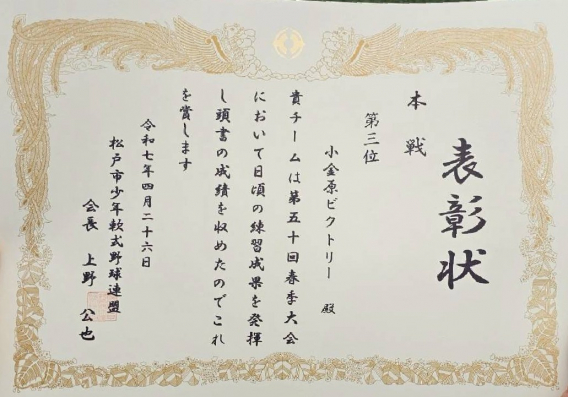 表彰状
本戦
第三位
小金原ビクトリー 殿
貴チームは第五十回春季大会
において日頃の練習成果を発揮
し頭書の成績を収めたのでこれ
を賞します
令和七年四月二十六日
松戸市少年軟式野球連盟
会長 上野 公也